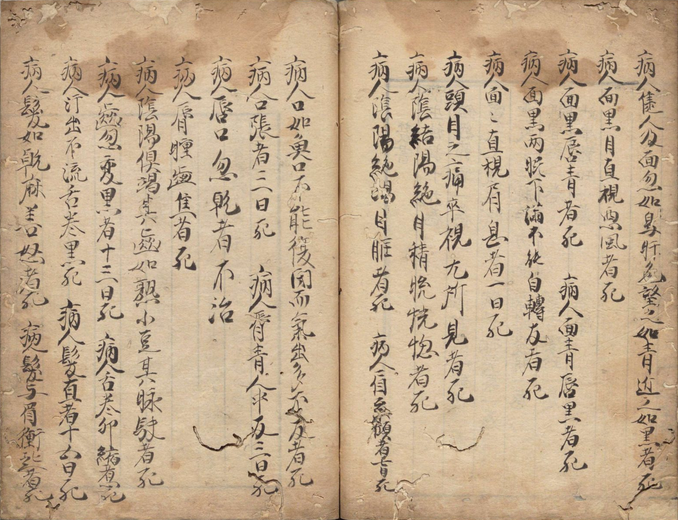 病人及面忽如馬肝色望之如青近之如黑者死
病人面黑目直視惡風者死
病人面黑唇青者死 病人面青唇黑者死
病人面黑兩眼下滿不能自轉反者死
病人面目直視肩息者一日死
病頭目之痛卒視无所見者死
病人陰結陽絶目精恍惚者死
病人陰陽絶竭目眶者死 病人眉系者七日死
病人口如魚口不能復閉而氣出多不反者死
病人口張者三日死 病人唇青人中反三日死
病人唇口忽乾者不治
病人唇腫齒焦者死
病人陰陽俱竭其齒如熟小豆其脉駃者死
病人齒忽變黑者十三日死 病人舌卷卵縮者死
病人汗出不流舌卷黑死 病人髮直者十五日死
病人髮如乾麻善怒者死 病人髮与眉衝起者死